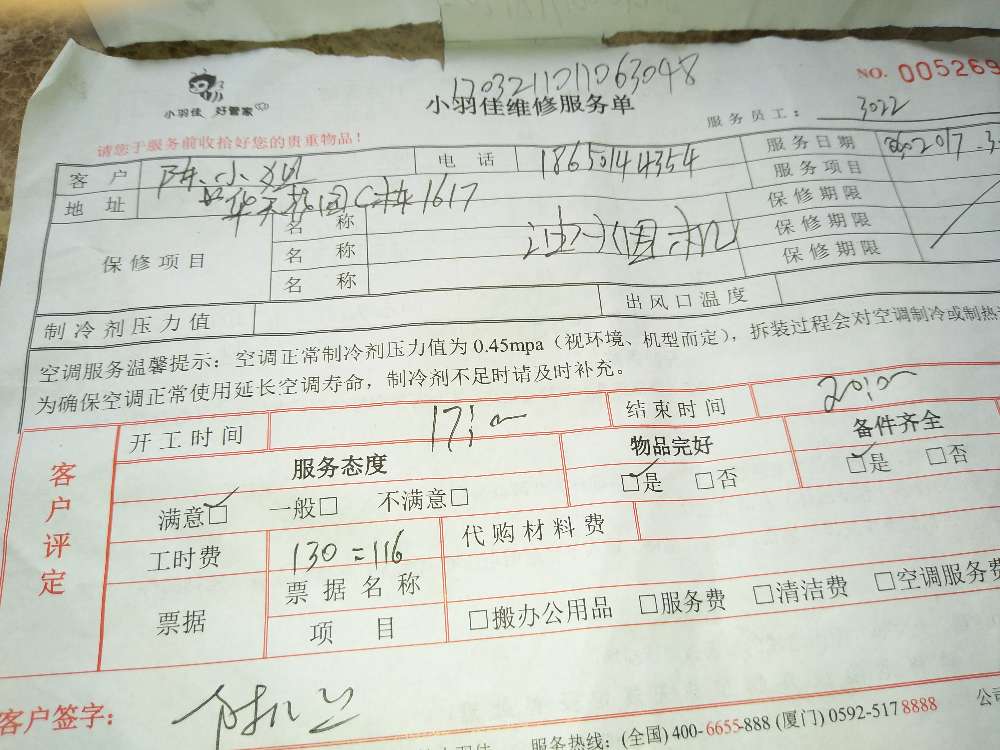 17032110117063048
小羽佳 好管家
小羽佳维修服务单
NO. 005269
服务员工: 3022
请您于服务前收拾好您的贵重物品!
客户 陈小 电话 18650144354 服务日期 2017.3
地址 C栋1617 服务项目
保修项目 名称 油烟机 保修期限
名称 保修期限
名称 保修期限
制冷剂压力值 出风口温度
空调服务温馨提示: 空调正常制冷剂压力值为 0.45mpa (视环境、机型而定), 拆装过程会对空调制冷或制热
为确保空调正常使用延长空调寿命, 制冷剂不足时请及时补充。
客户评定
开工时间 17:00 结束时间 20:00
服务态度 物品完好 备件齐全
满意☑ 一般□ 不满意□ ☑是 □否 ☑是 □否
工时费 130=116 代购材料费
票据 票据名称
项目 □搬办公用品 □服务费 □清洁费 □空调服务费
客户签字:
服务热线: (全国) 400-6655-888 (厦门) 0592-517 8888 公司